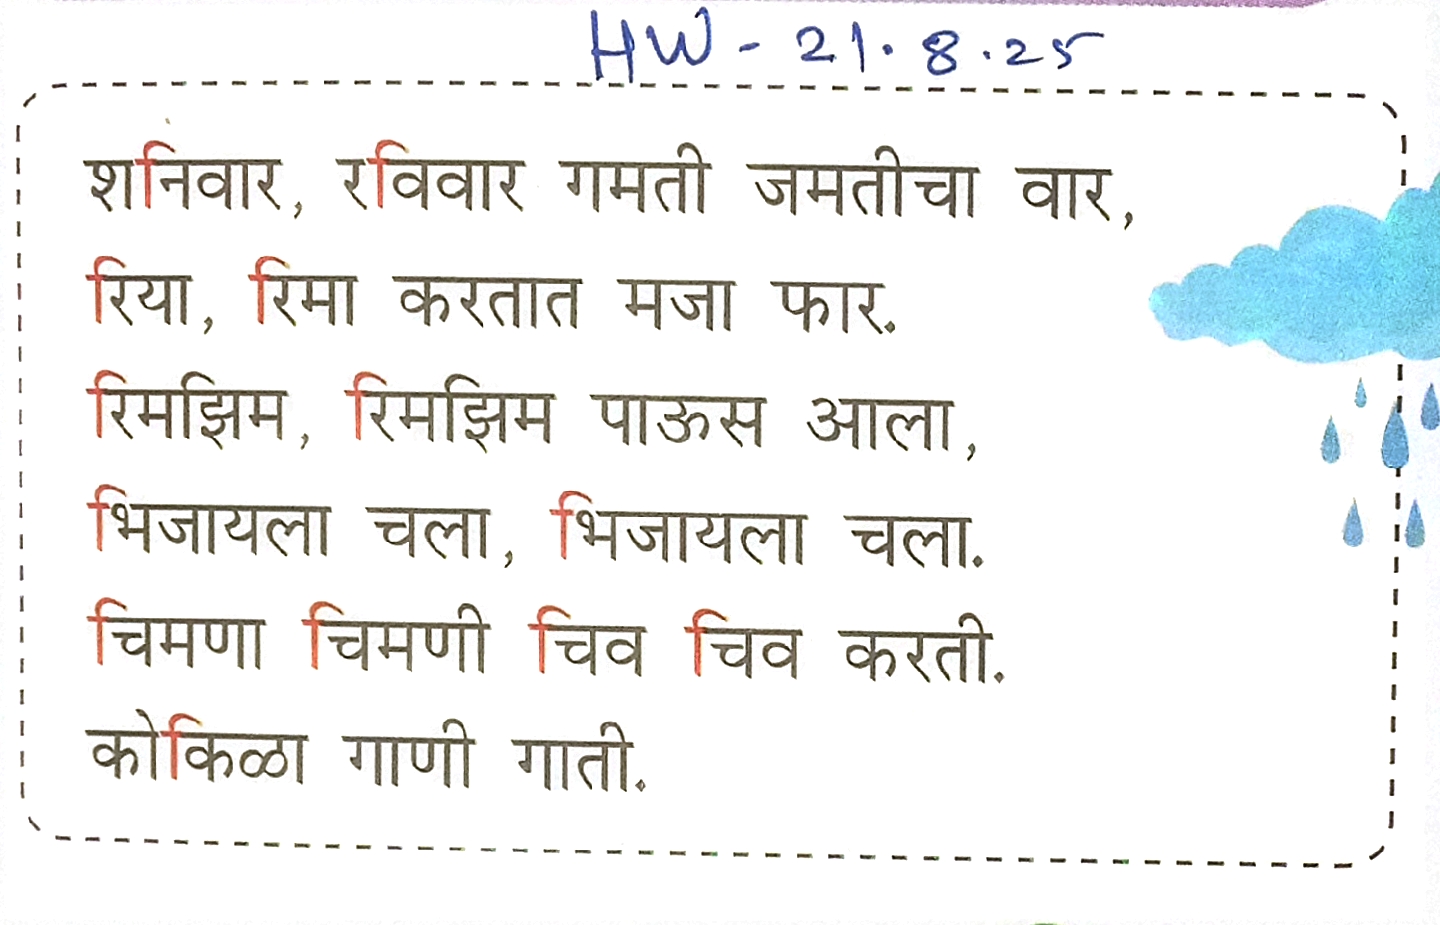 HW - 21.8.25
शनिवार, रविवार गमती जमतीचा वार,
रिया, रिमा करतात मजा फार.
रिमझिम, रिमझिम पाऊस आला,
भिजायला चला, भिजायला चला.
चिमणा चिमणी चिव चिव करती.
कोकिळा गाणी गाती.